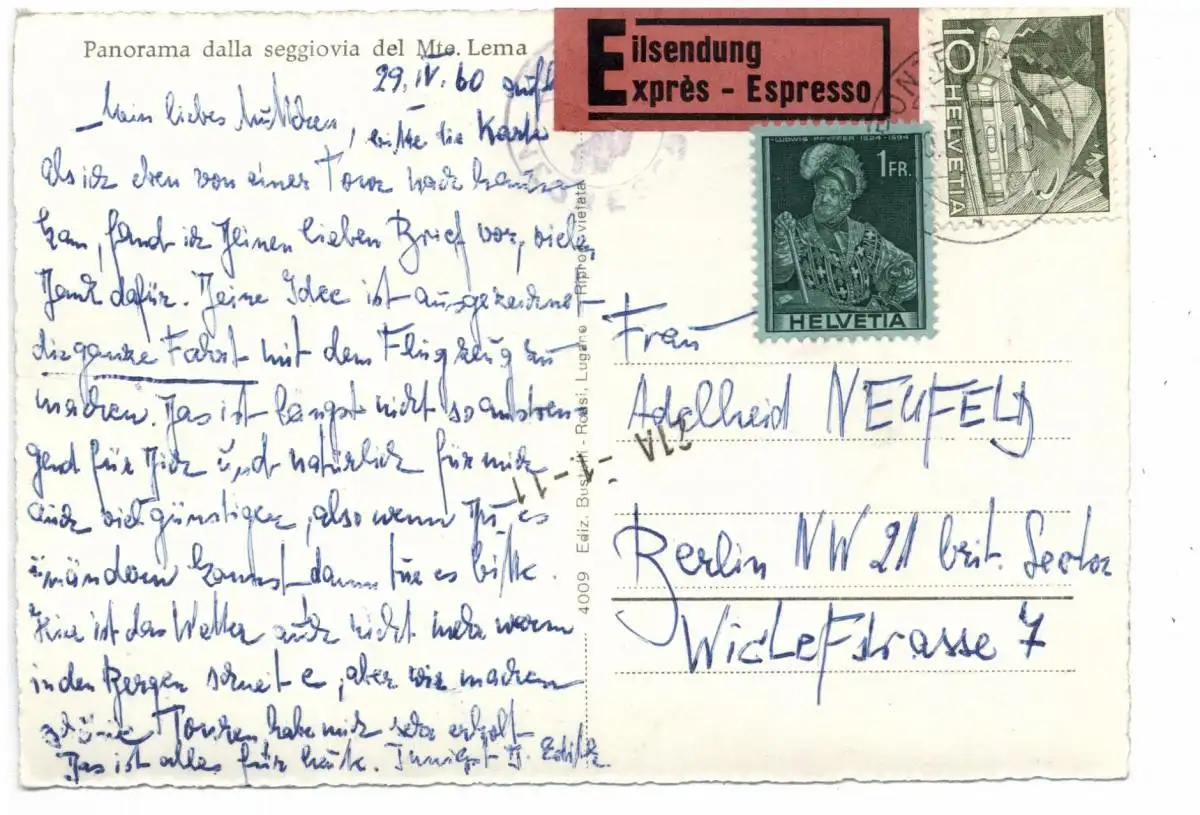 Panorama dalla seggiovia del Mte. Lema
29. IV. 60
Mein liebes Muttchen, bitte die Karte aufh
Als ich eben von einer Tour nach hause
kam, fand ich Deinen lieben Brief vor, vielen
Dank dafür. Deine Idee ist ausgezeichnet
die ganze Fahrt mit dem Flugzeug zu
machen. Das ist längst nicht so anstren-
gend für Dich und natürlich für mich
auch viel günstiger, also wenn Du es
umändern kannst dann tue es bitte.
Hier ist das Wetter auch nicht mehr warm
in den Bergen schneit e, aber wir machen
schöne Touren habe mich sehr erholt
Das ist alles für heute. Innigst D. Edith
4009 Ediz. Lugano - Ripro vietata
Eilsendung
Exprès - Espresso
10 HELVETIA
LUDWIG PFYFFER 1524-1594
1 FR.
HELVETIA
11-1-
Frau
Adelheid NEUFELD
Berlin NW 21 brit. Sector
Wiclefstrasse 7